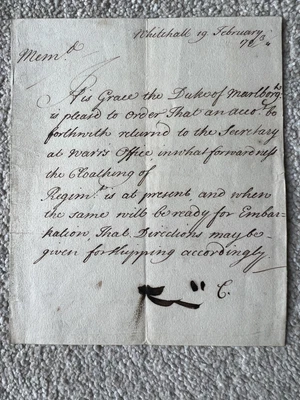 Whitehall 19 February
Mem.d
His Grace the Duke of Marlborg.h
is pleasd to order That an acco.t be
forthwith returnd to the Secretary
at Warr's Office, in what forwardness
the Cloathing of
Regim.t is at present, and when
the same will be ready for Embar-
kation, That Directions may be
given for shipping accordingly
C.